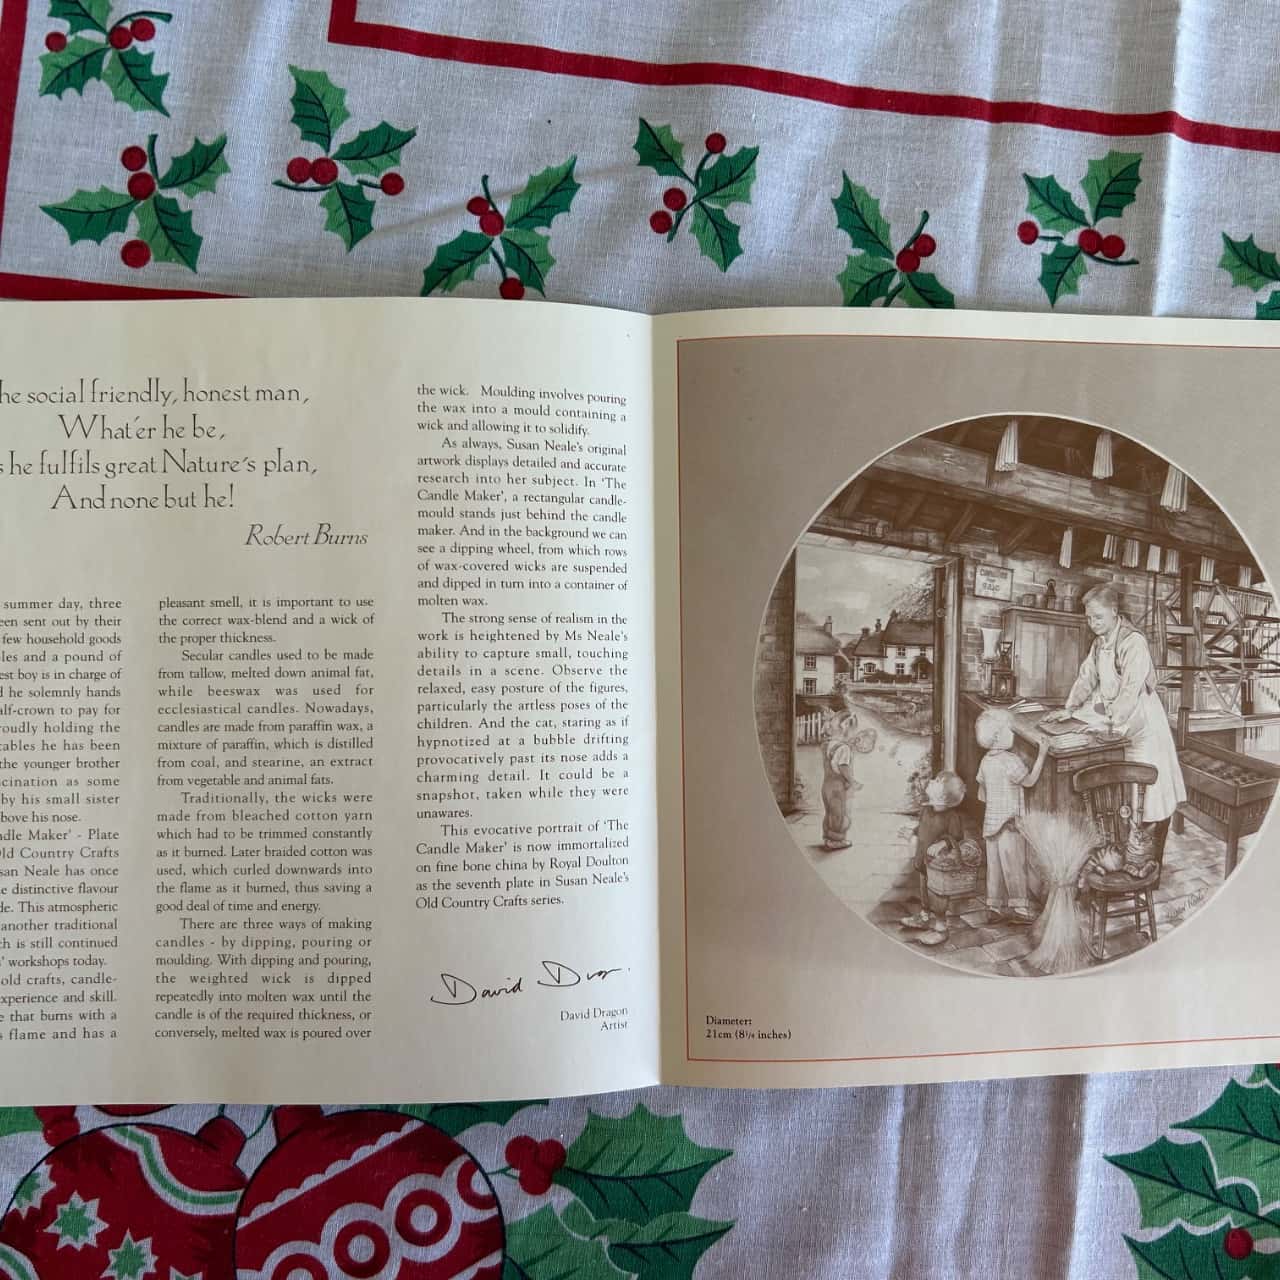 he social friendly, honest man,
What'er he be,
s he fulfils great Nature's plan,
And none but he!
Robert Burns
summer day, three
een sent out by their
few household goods
les and a pound of
est boy is in charge of
d he solemnly hands
alf-crown to pay for
roudly holding the
tables he has been
the younger brother
cination as some
by his small sister
bove his nose.
ndle Maker' - Plate
Old Country Crafts
san Neale has once
e distinctive flavour
de. This atmospheric
another traditional
ch is still continued
s' workshops today.
old crafts, candle-
xperience and skill.
e that burns with a
s flame and has a
pleasant smell, it is important to use
the correct wax-blend and a wick of
the proper thickness.
Secular candles used to be made
from tallow, melted down animal fat,
while beeswax was used for
ecclesiastical candles. Nowadays,
candles are made from paraffin wax, a
mixture of paraffin, which is distilled
from coal, and stearine, an extract
from vegetable and animal fats.
Traditionally, the wicks were
made from bleached cotton yarn
which had to be trimmed constantly
as it burned. Later braided cotton was
used, which curled downwards into
the flame as it burned, thus saving a
good deal of time and energy.
There are three ways of making
candles - by dipping, pouring or
moulding. With dipping and pouring,
the weighted wick is dipped
repeatedly into molten wax until the
candle is of the required thickness, or
conversely, melted wax is poured over
the wick. Moulding involves pouring
the wax into a mould containing a
wick and allowing it to solidify.
As always, Susan Neale's original
artwork displays detailed and accurate
research into her subject. In 'The
Candle Maker', a rectangular candle-
mould stands just behind the candle
maker. And in the background we can
see a dipping wheel, from which rows
of wax-covered wicks are suspended
and dipped in turn into a container of
molten wax.
The strong sense of realism in the
work is heightened by Ms Neale's
ability to capture small, touching
details in a scene. Observe the
relaxed, easy posture of the figures,
particularly the artless poses of the
children. And the cat, staring as if
hypnotized at a bubble drifting
provocatively past its nose adds a
charming detail. It could be a
snapshot, taken while they were
unawares.
This evocative portrait of 'The
Candle Maker' is now immortalized
on fine bone china by Royal Doulton
as the seventh plate in Susan Neale's
Old Country Crafts series.
David Dragon
David Dragon
Artist
CANDLES
FOR
SALE
Susan Neale
Diameter:
21cm (8¼ inches)